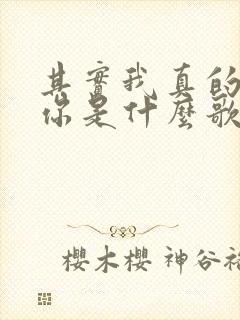 其實我真的
你是什麼歌
櫻木櫻 神谷裕